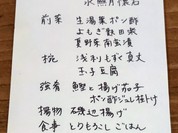 水無月懐石
前菜 生湯葉ポン酢
よもぎ麩田楽
夏野菜南蛮漬
椀 浅利もずく真丈
玉子豆腐
強肴 鰹と揚げ茄子
ポン酢ジュレ掛け
揚物 磯辺揚げ
食事 とりもろこしごはん